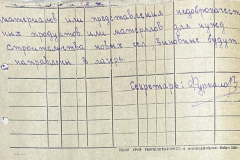 материалов или представления недоброкачествен-
ных продуктов или материалов для нужд
строительства новых сел виновные будут
направлены в лагерь.
Секретарь: